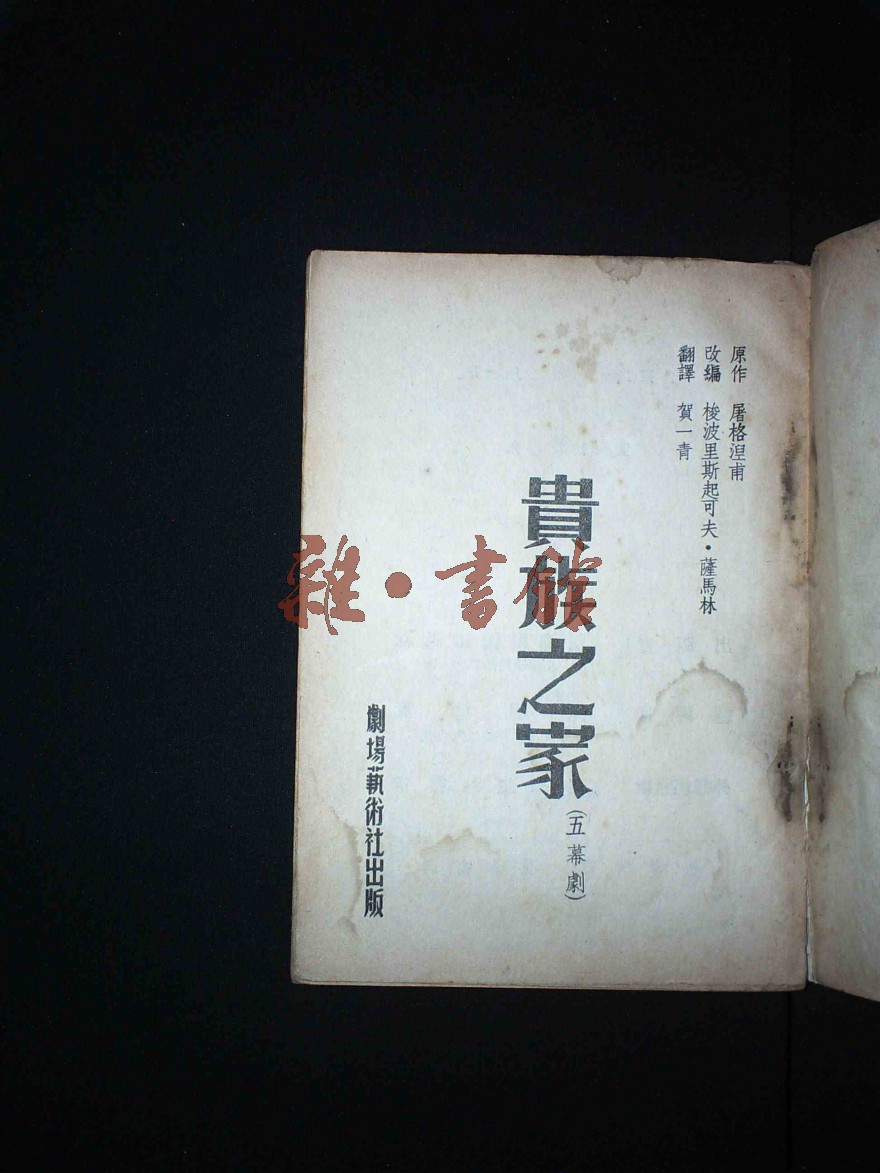 原作 屠格涅甫
改編 梭波里斯起可夫·薩馬林
翻譯 賀一青
貴族之家
(五幕劇)
劇場藝術社出版
雜·書館